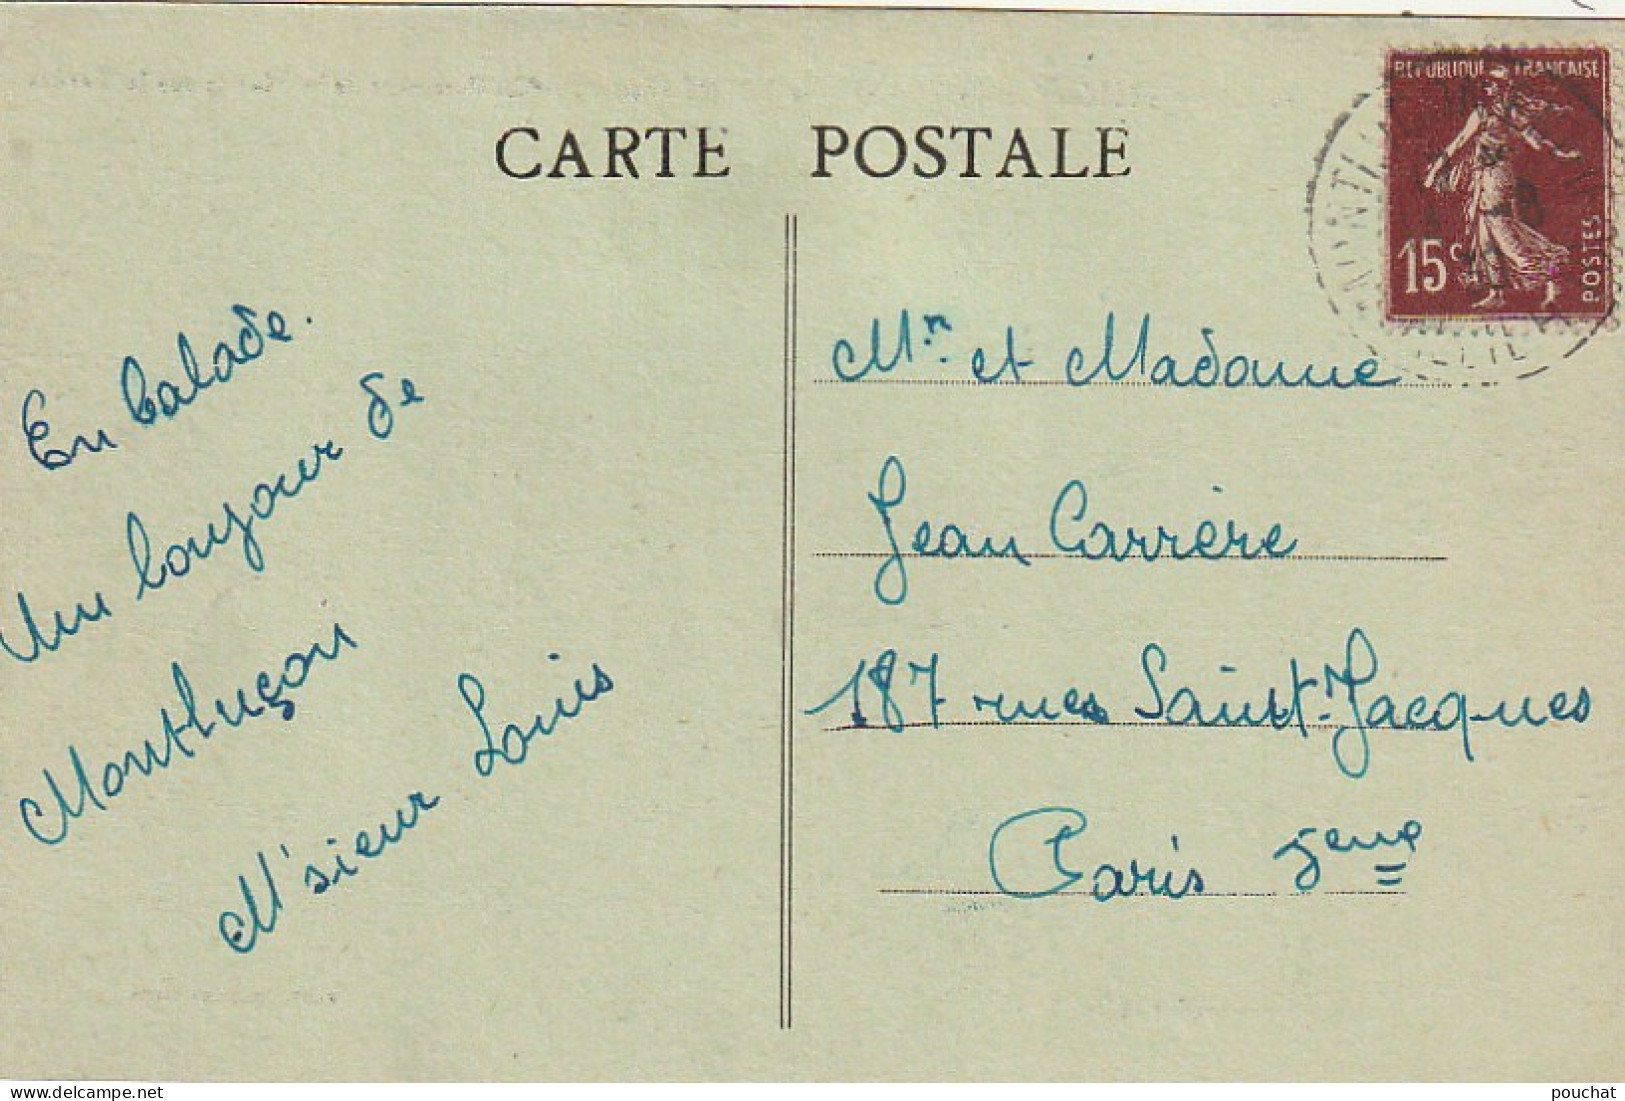 CARTE POSTALE
REPUBLIQUE FRANCAISE
15c
POSTES
En balade.
Un bonjour de
Montluçon
M'sieur Louis
Mr et Madame
Jean Carrère
187 rues Saint-Jacques
Paris 5eme
pouchat